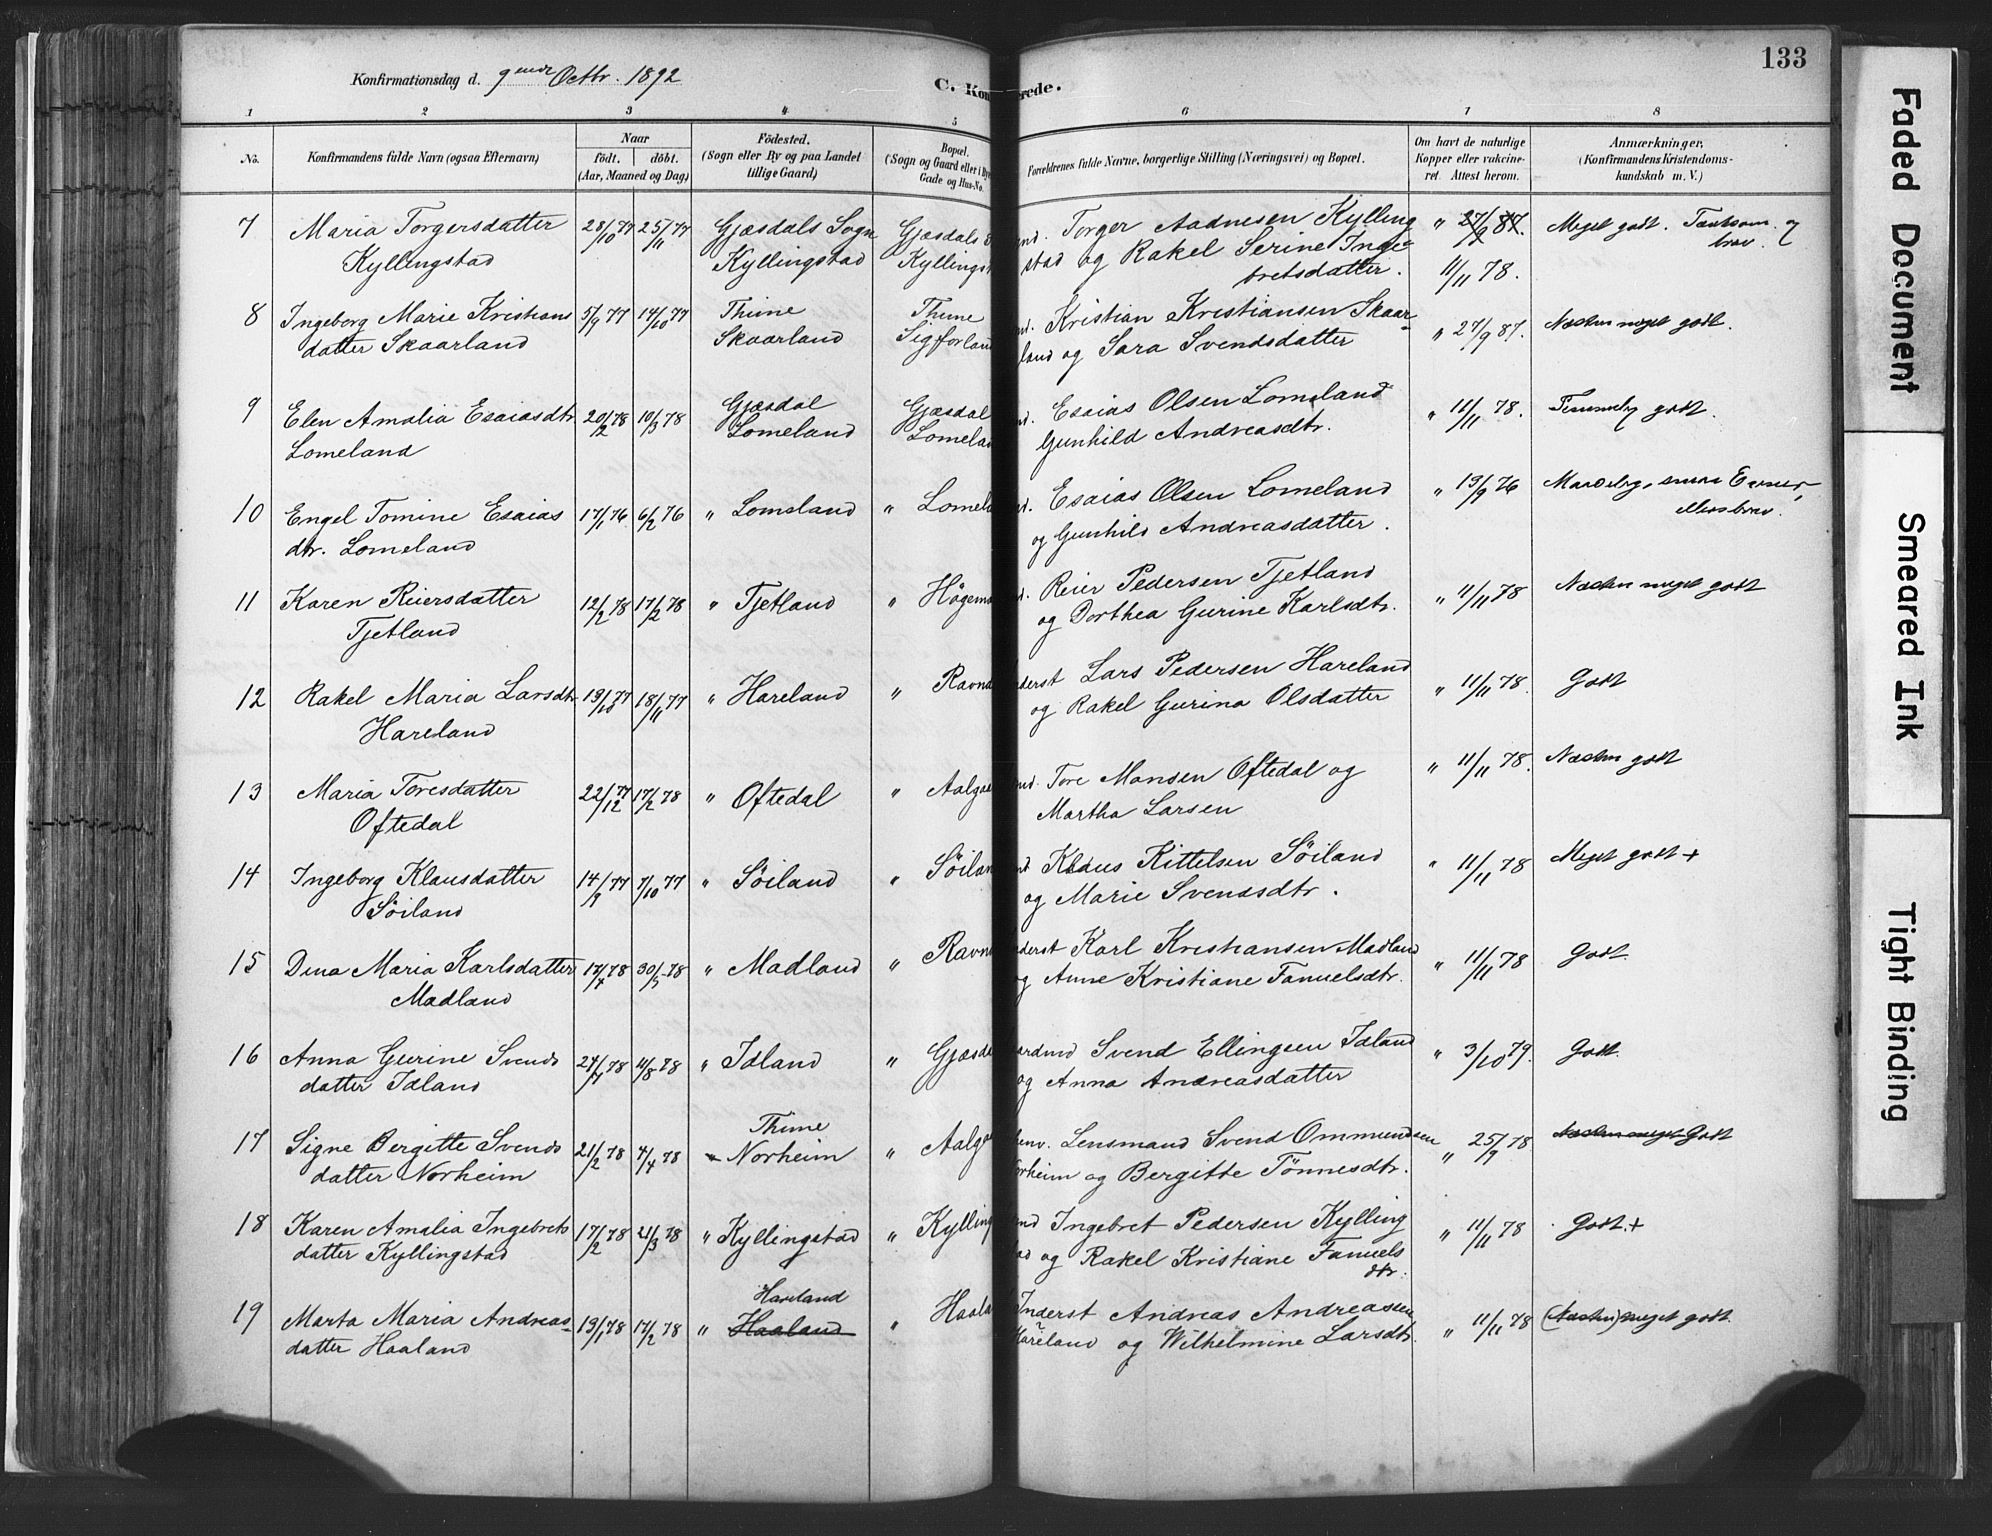 133
Konfirmationsdag d. 9ende Octbr. 1892
C. Kon erede.
1 2 3 4 5 6 7 8
No. Konfirmandens fulde Navn (ogsaa Efternavn) Naar födt. döbt. (Aar, Maaned og Dag) Födested. (Sogn eller By og paa Landet tillige Gaard) Bopæl. (Sogn og Gaard eller i By Gade og Hus-No. Forældrenes fulde Navne, borgerlige Stilling (Næringsvei) og Bopæl. Om havt de naturlige Kopper eller vakcineret. Attest herom. Anmærkninger. (Konfirmandens Kristendomskundskab m. V.)
7 Maria Torgersdatter 28/10 77 25/11 77 Gjæsdals Sogn Gjæsdals nd. Torger Aadnesen Kylling " 27/9 87. Meget godt.
Kyllingstad Kyllingstad Kyllingst stad og Rakel Serine Inge- 11/11 78.
bretsdatter.
8 Ingeborg Marie Kristians 5/9 77 14/10 77 Thime Thime nd. Kristian Kristiansen Skaar- " 27/9 87. Næsten meget godt.
datter Skaarland Skaarland Sigforland land og Sara Svendsdatter
9 Elen Amalia Esaiasdtr. 20/2 78 10/3 78 Gjæsdal Gjæsdal d. Esaias Olsen Lomeland " 11/11 78. Temmelig godt.
Lomeland Lomeland Lomelan Gunhild Andreasdtr.
10 Engel Tomine Esaias 17/1 76 6/2 76 " Lomeland " Lomela d. Esaias Olsen Lomeland " 13/9 76
dtr. Lomeland og Gunhild Andreasdatter.
11 Karen Reiersdatter 12/2 78 17/2 78 " Tjetland " Högemo d. Reier Pedersen Tjetland " 11/11 78 Næsten meget godt
Tjetland og Dorthea Gurine Karlsdtr.
12 Rakel Maria Larsdtr. 19/10 77 18/11 77 " Hareland " Ravnd derst Lars Pedersen Hareland " 11/11 78. Godt
Hareland og Rakel Gurina Olsdatter
13 Maria Toresdatter 22/12 77 17/2 78 " Oftedal " Aalgaa nd. Tore Monsen Oftedal og " 11/11 78. Næsten godt
Oftedal Martha Larsen
14 Ingeborg Klausdatter 14/9 77 7/10 77 " Söiland " Söilan nd Klaus Kittelsen Söiland " 11/11 78 Meget godt +
Söiland og Marie Svendsdtr.
15 Dina Maria Karlsdatter 17/4 78 30/5 78 " Madland " Ravn derst Karl Kristiansen Madland " 11/11 78 Godt.
Madland og Anne Kristiane Fanuelsdtr.
16 Anna Gurine Svends 24/7 78 11/8 78 " Idland " Gjæsda ardmd Svend Ellingsen Idland " 3/10 79. Godt.
datter Idland og Anna Andreasdatter
Thime
17 Signe Bergitte Svends 21/2 78 4/4 78 " Norheim " Aalga env. Lensmand Svend Ommundsen " 25/9 78 Næsten meget Godt
datter Norheim orheim og Bergitte Tönnesdtr.
18 Karen Amalia Ingebrets 17/2 78 21/3 78 " Kyllingstad " Kylling nd Ingebret Pedersen Kylling " 11/11 78 Godt. +
datter Kyllingstad ad og Rakel Kristiane Fanuels
dtr.
Hareland
19 Marta Maria Andreas- 19/1 78 17/2 78 " Haaland " Haala Inderst Andreas Andreasen " 11/11 78 (Næsten) meget godt.
datter Haaland Hareland og Wilhelmine Larsdtr.
Faded Document
Smeared Ink
Tight Binding